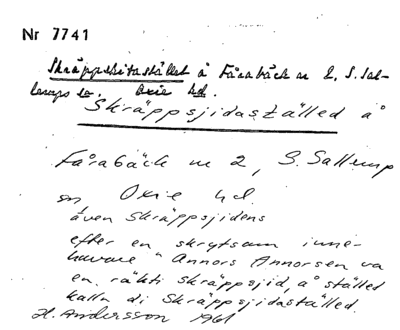 Nr 7741
Skräppskitastället å Fårabäck nr 2, S. Sal-
lerups sn. Oxie hd.
Skräppsjidaställed å
Fårabäck nr 2, S. Sallerup
sn Oxie hd.
även skräppsjidens
efter en skrytsam inne-
havare "Annors Annorsen va
en räkti skräppsjid, å ställed
kalla di Skräppsjidaställed.
H. Andersson 1961